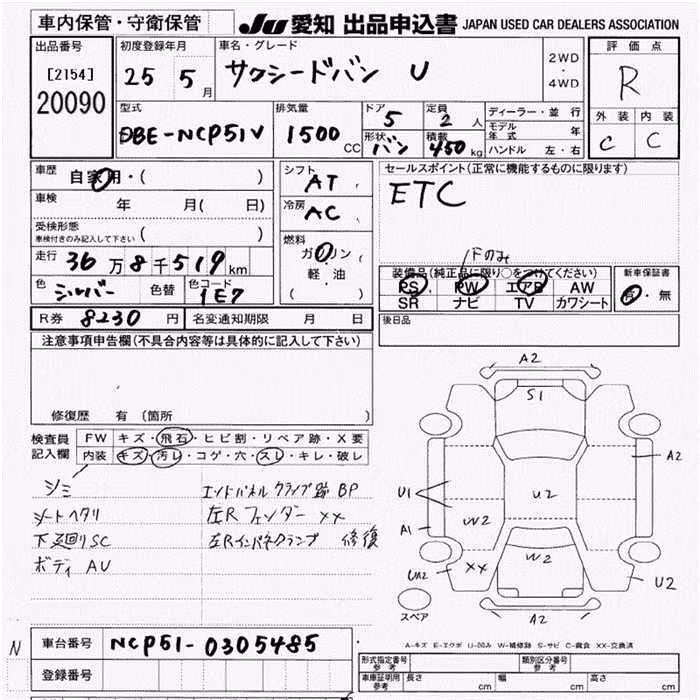 車内保管・守衛保管
JU 愛知 出品申込書 JAPAN USED CAR DEALERS ASSOCIATION
出品番号
[2154]
20090
初度登録年月
25 5 月
車名・グレード
サクシードバン U
2WD
・
4WD
評価点
R
外装 内装
C C
型式
DBE-NCP51V
排気量
1500 CC
ドア 5
定員 2 人
形状 バン
積載 450 kg
ディーラー・並行
モデル年式 年
ハンドル 左・右
車歴
自家用・( )
車検
年 月( 日)
受検形態
車検付きのみ記入して下さい ( )
走行 36万8千519km
色 シルバー 色替 色コード 1E7
シフト
AT
冷房
AC
燃料
ガソリン
軽油
( )
セールスポイント(正常に機能するものに限ります)
ETC
装備品(純正品に限り○をつけてください)
PS PW エアB AW
SR ナビ TV カワシート
新車保証書
有・無
R券 8230 円 名変通知期限 月 日
後日品
注意事項申告欄(不具合内容等は具体的に記入して下さい)
修復歴 有 (箇所 )
検査員記入欄
FW キズ・飛石・ヒビ割・リペア跡・X要
内装 キズ・汚レ・コゲ・穴・スレ・キレ・破レ
シミ
シートヘタリ
下廻りSC
ボディAU
エンドパネルクランプ跡 BP
左Rフェンダー XX
左Rインパネクランプ 修復
A2
S1
A2
U1
U2
W2
A1
W2
UA2
XX
U2
A2
スペア
A-キズ E-エクボ U-凹み W-補修跡 S-サビ C-腐食 XX-交換済
N
車台番号 NCP51-0305485
登録番号
形式指定番号 参考
類別区分番号 参考
車庫証明用 参考 長さ cm 幅 cm 高さ cm